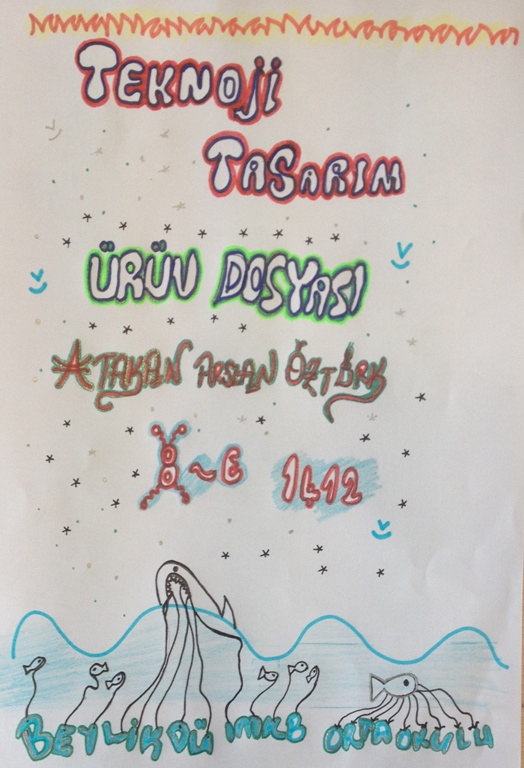 TEKNOJİ
TASARIM
ÜRÜN DOSYASI
ATAKAN ARSLAN ÖZTÜRK
8~E 1412
BEYLİKDÜ İMKB ORTAOKULU